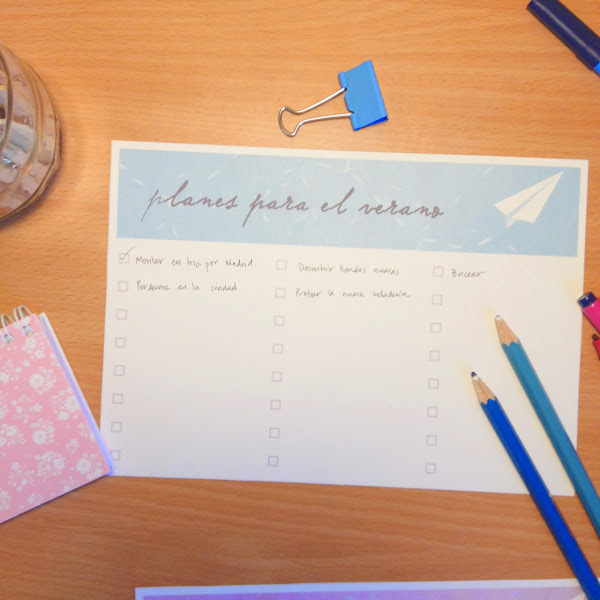 planes para el verano
Montar en bici por Madrid
Perderme en la ciudad
Descubrir tiendas nuevas
Probar la nueva heladería
Bucear